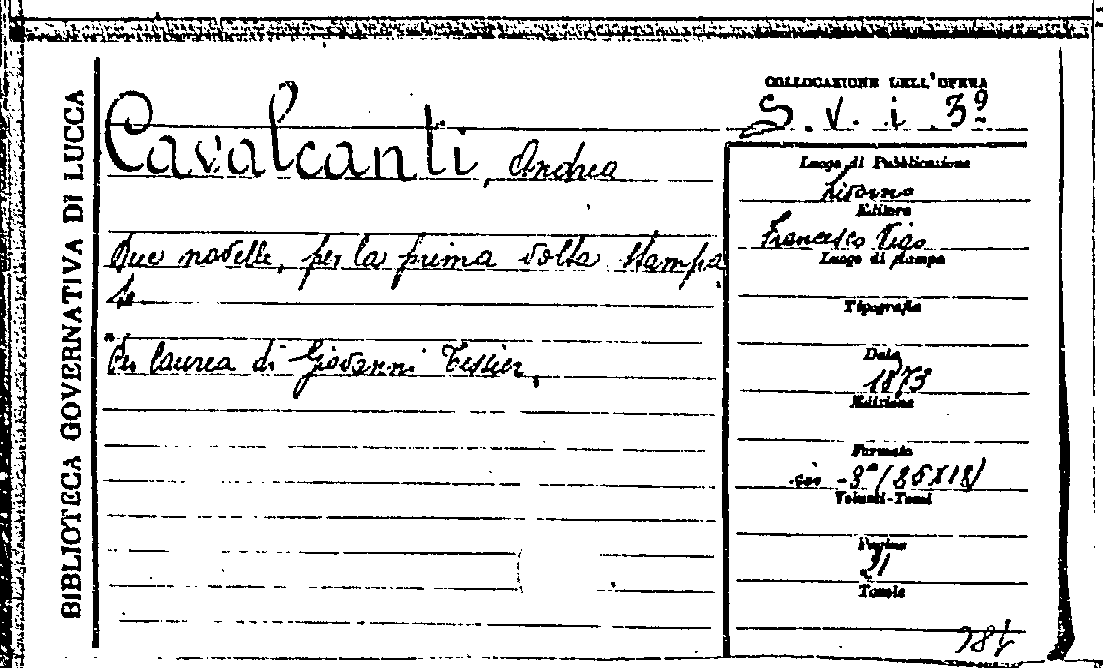 BIBLIOTECA GOVERNATIVA DI LUCCA
Cavalcanti, Andrea
Due novelle, per la prima volta stampa
te.
Per laurea di Giovanni Tessier.
COLLOCAZIONE DELL'OPERA
S. v. i 3º
Luogo di Pubblicazione
Livorno
Editore
Francesco Vigo
Luogo di stampa
Tipografia
Data
1873
Edizione
Formato
in -8º
Volumi-Tomi
Pagine
21
Tavole